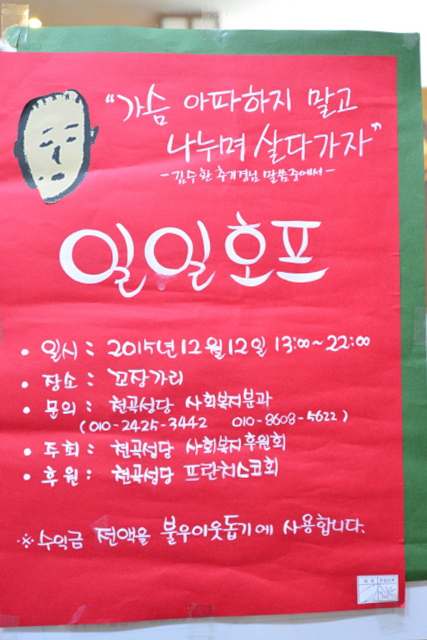 “가슴 아파하지 말고
나누며 살다가자”
- 김수환 추기경님 말씀중에서 -
일일호프
• 일시 : 2015년 12월 12일 13:00~22:00
• 장소 : 꼬장가리
• 문의 : 천곡성당 사회복지분과
(010-2425-3442 010-8608-5622)
• 주최 : 천곡성당 사회복지후원회
• 후원 : 천곡성당 프란치스코회
※ 수익금 전액을 불우이웃돕기에 사용합니다.